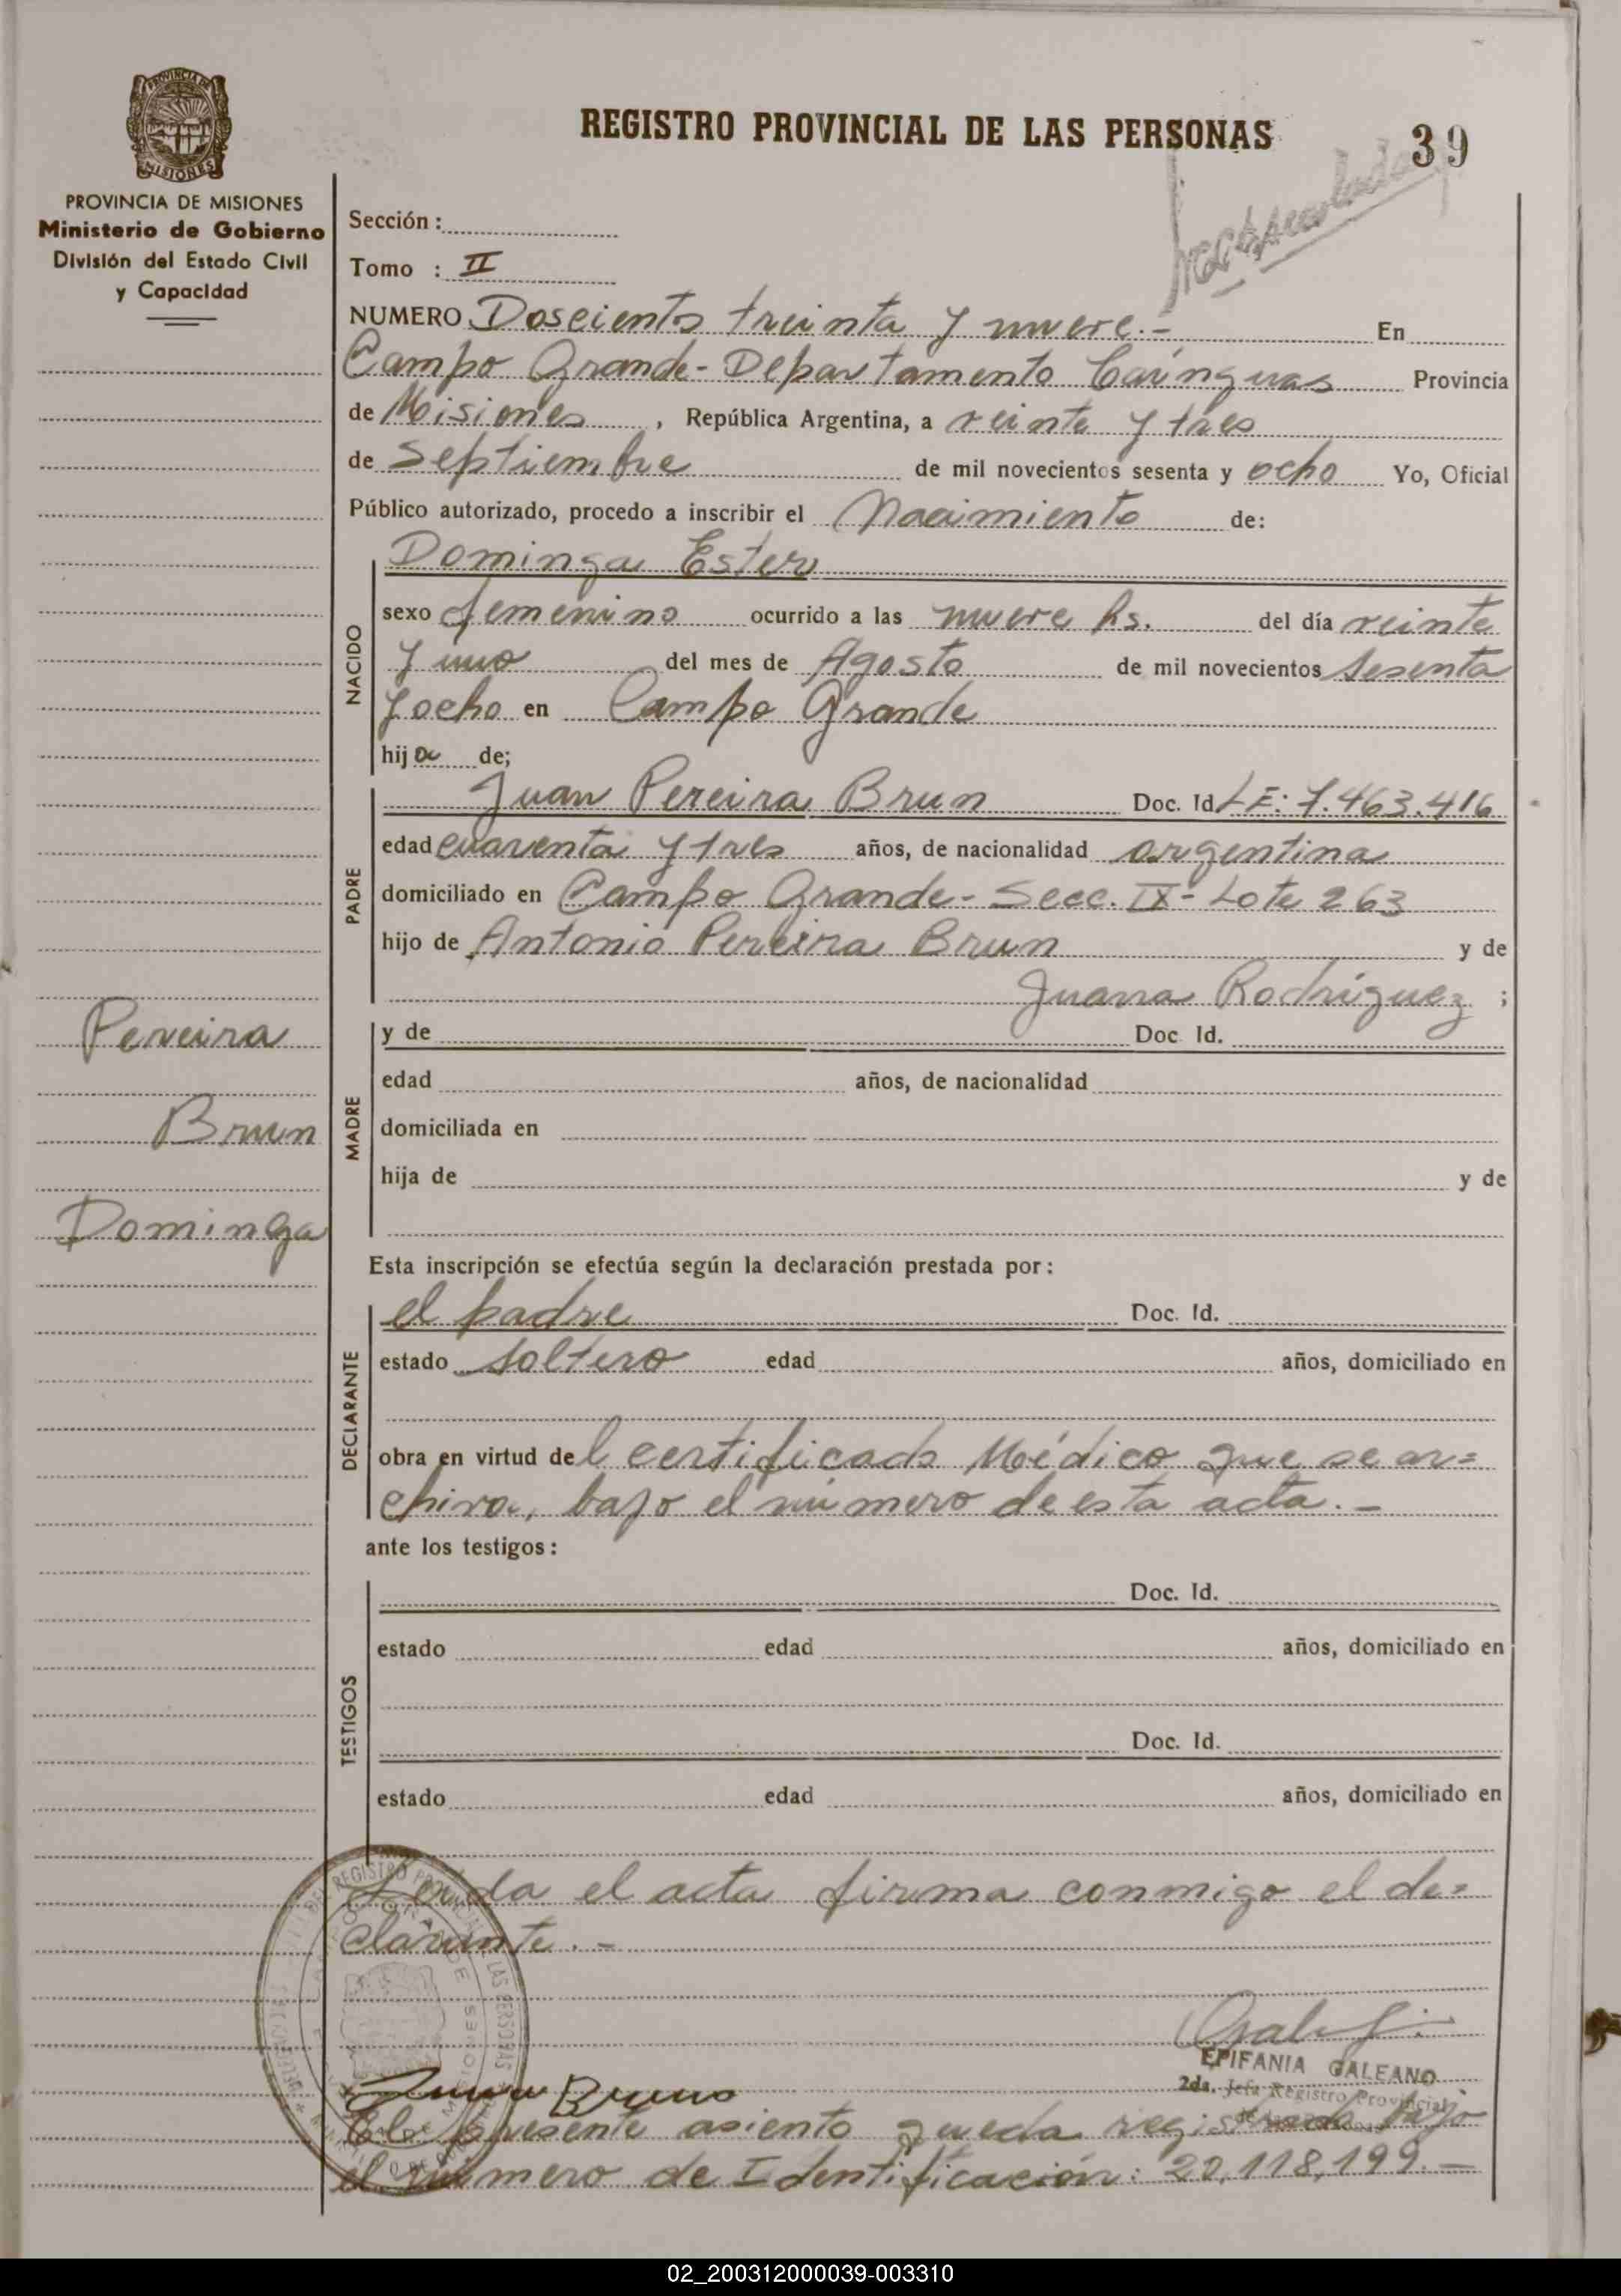 REGISTRO PROVINCIAL DE LAS PERSONAS
39
PROVINCIA DE MISIONES
Ministerio de Gobierno
División del Estado Civil
y Capacidad
Sección :
Tomo : II
NUMERO Doscientos treinta y nueve.- En
Campo Grande - Departamento Cainguas Provincia
de Misiones, República Argentina, a veinte y tres
de Septiembre de mil novecientos sesenta y ocho Yo, Oficial
Público autorizado, procedo a inscribir el Nacimiento de:
NACIDO
Dominga Ester
sexo femenino ocurrido a las nueve hs. del día veinte
y uno del mes de Agosto de mil novecientos sesenta
y ocho en Campo Grande
hija de;
PADRE
Juan Pereira Brun Doc. Id. LE: 7.463.416
edad cuarenta y tres años, de nacionalidad argentina
domiciliado en Campo Grande - Secc. IX - Lote 263
hijo de Antonio Pereira Brun y de
Juana Rodríguez ;
Pereira
Brun
Dominga
MADRE
y de Doc. Id.
edad años, de nacionalidad
domiciliada en
hija de y de
Esta inscripción se efectúa según la declaración prestada por :
DECLARANTE
el padre Doc. Id.
estado soltero edad años, domiciliado en
obra en virtud del certificado Médico que se ar=
chiva, bajo el número de esta acta. -
ante los testigos :
TESTIGOS
Doc. Id.
estado edad años, domiciliado en
Doc. Id.
estado edad años, domiciliado en
Leida el acta firma conmigo el de=
clarante. -
EPIFANIA GALEANO
2da. Jefa Registro Provincial
El presente asiento queda registrado bajo
el número de Identificación: 20.118.199.-
02_200312000039-003310